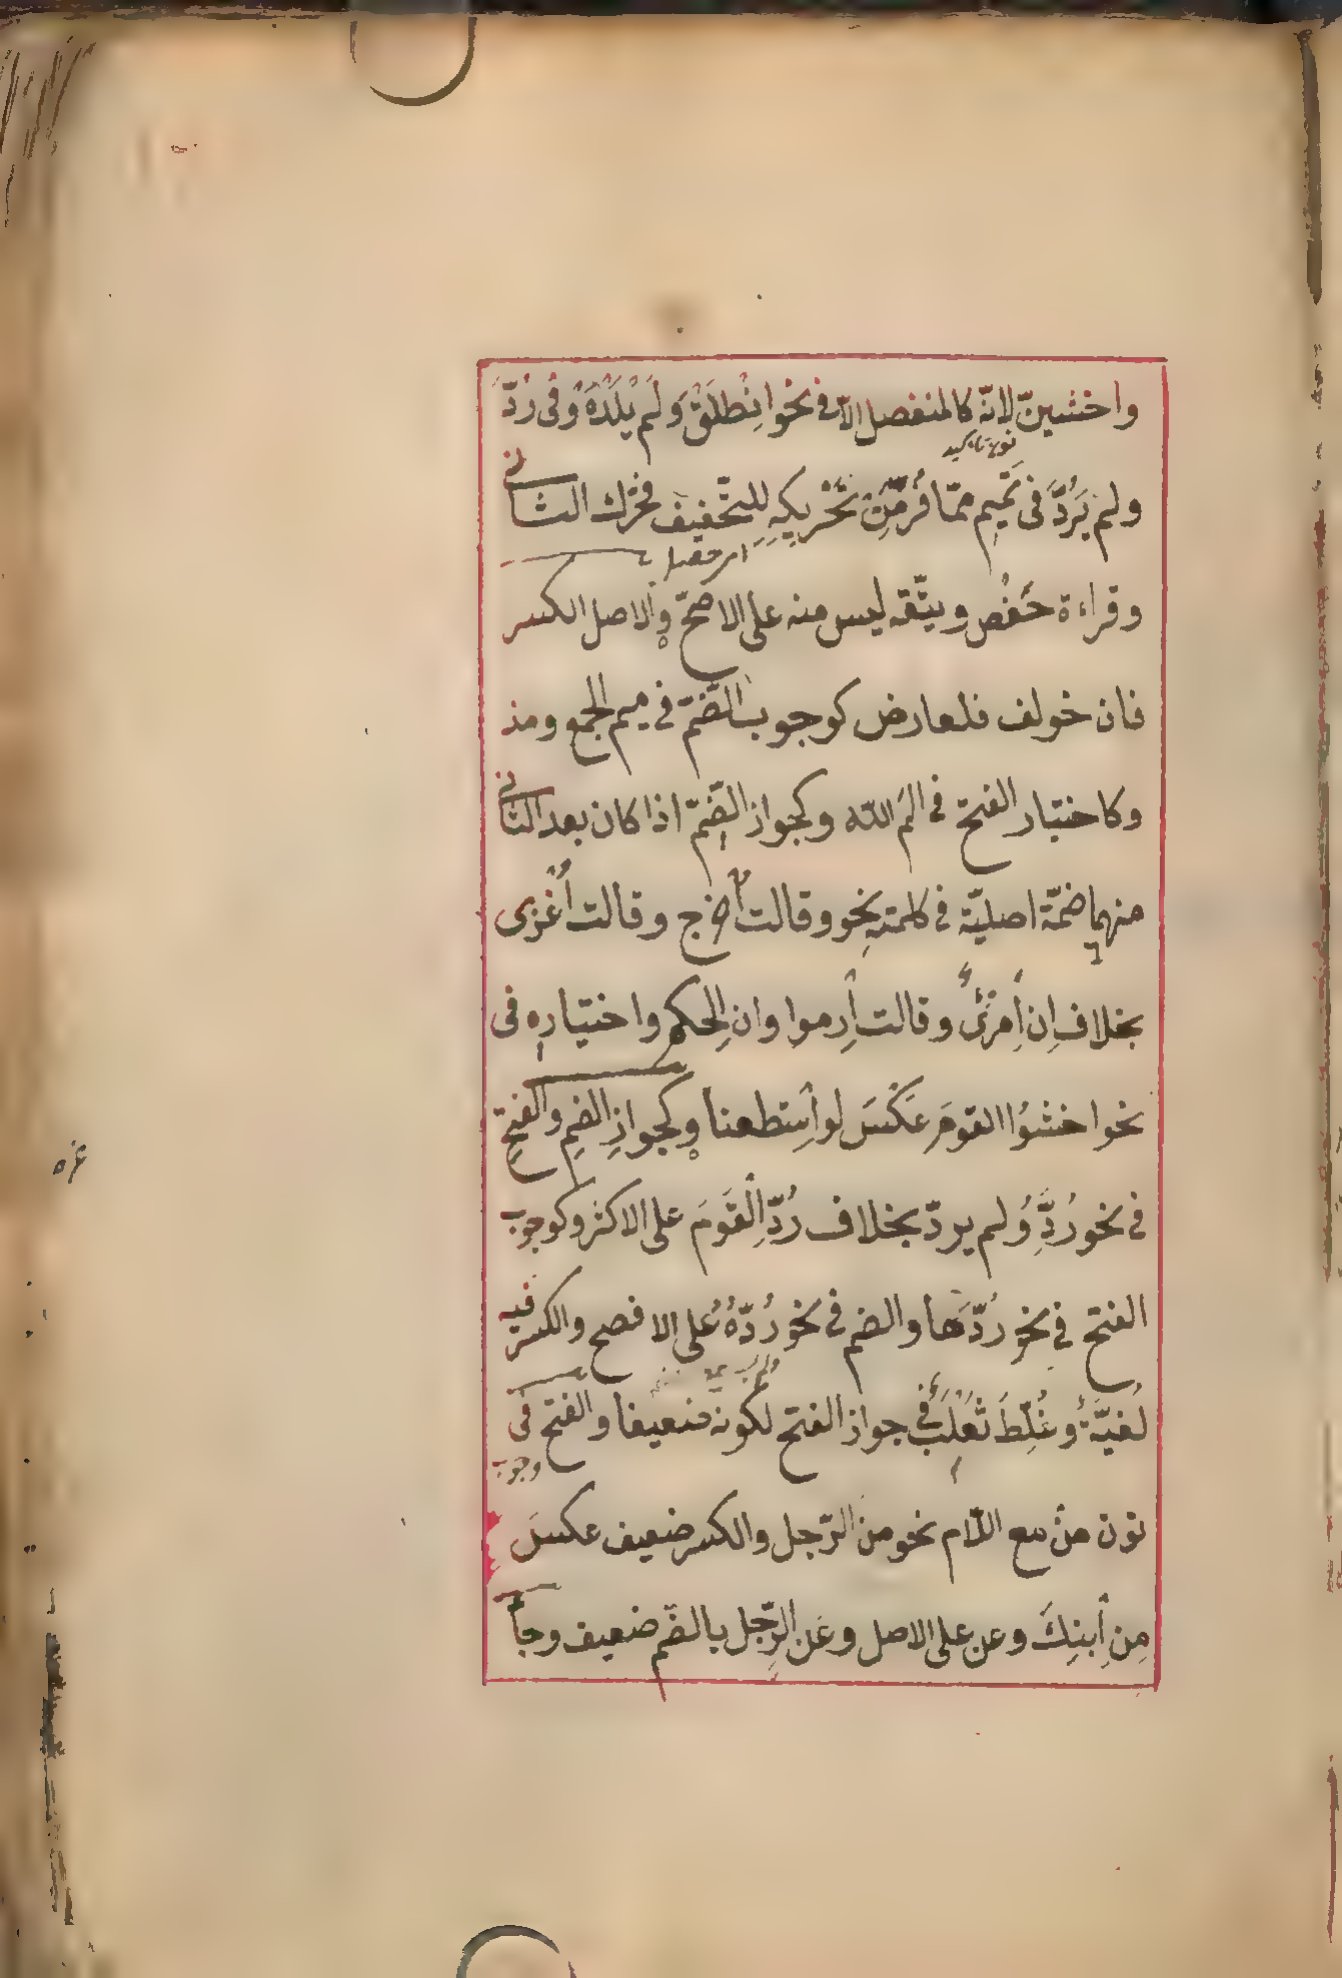 واخشينّ لانّه كالمنفصل الّا فى نحو انْطَلْقَ وَلَم يَلْدَهُ وَفى رُدَّ
نون تاكيد
ولم يَرُدَّ فى تَميم ممّا فُرَّ مِن تَحْريكِهِ للتّخفيف فحرّك الثانى
وقراءة حَفْص ويتّقه ليس منه على الاصحّ والاصل الكسر
فان خولف فلعارض كوجوب الضّمّ فى ميم الجمع ومذ
وكاختيار الفتح فى الم الله وكجواز الضّمّ اذا كان بعد الثانى
منهما ضمّة اصليّة فى كلمته نحو وقالت اُخرج وقالت اُغزى
بخلاف اِن اِمرُؤٌ وقالت اِرموا وان الحكم واختياره فى
نحو اخشَوُا القومَ عَكْسَ لو اِستطعنا وكجواز الضمِ والفتحِ
فى نحو رُدَّ وَلم يردّ بخلاف رُدِّ الْقَومَ على الاكثر وكوجوب
الفتح فى نحو رُدَّهَا والضم فى نحو رُدّهُ على الافصح والكسر فيه
لُغَيَّة وغُلِّطَ ثَعْلَب فى جواز الفتح لكونه ضعيفا والفتح فى
وجوب
نون مِنْ مع اللّام نحو من الرّجل والكسر ضعيف عكسَ
مِنِ اِبنِكَ وعن على الاصل وعَن الرّجل بالضّم ضعيف وجا